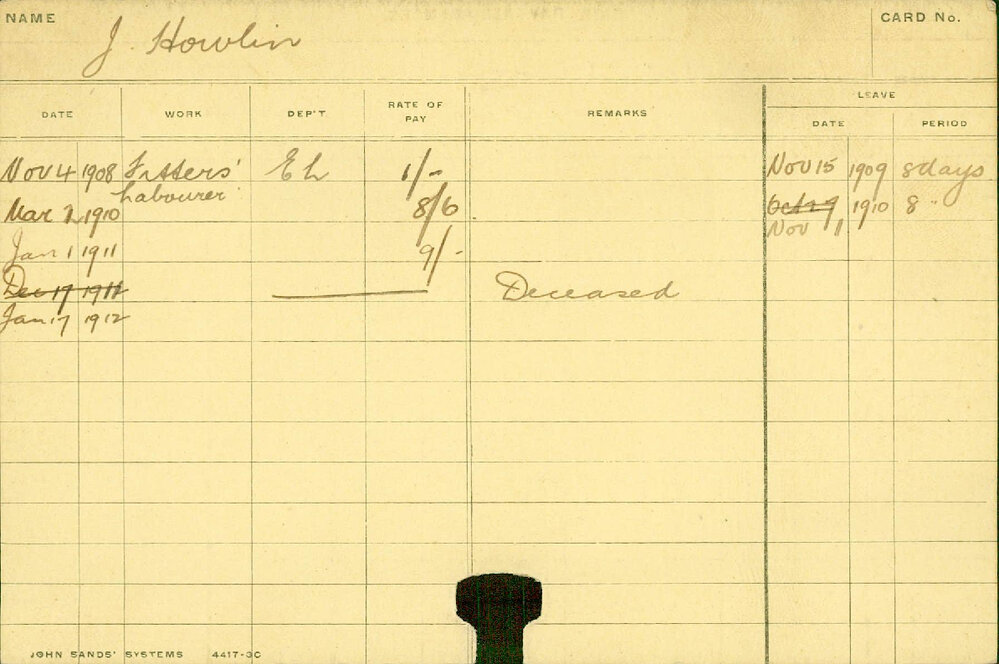 NAME J. Howlin CARD No.
LEAVE
DATE WORK DEP'T RATE OF PAY REMARKS DATE PERIOD
Nov 4 1908 Fitters' Eh 1/- Nov 15 1909 8 days
Labourer
Mar 2 1910 8/6 Oct 29 1910 8 "
Nov 1
Jan 1 1911 9/-
Dec 17 1911 Deceased
Jan 17 1912
JOHN SANDS' SYSTEMS 4417-3C